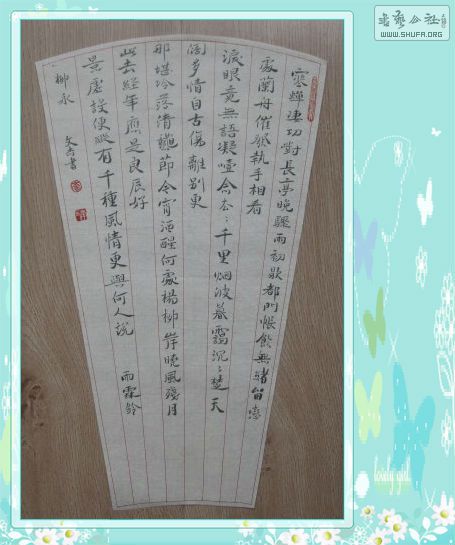 寒蟬淒切對長亭晚驟雨初歇都門帳飲無緒留戀
處蘭舟催發執手相看
淚眼竟無語凝噎念去々千里烟波暮靄沉々楚天
闊多情自古傷離別更
那堪冷落清龝節今宵酒醒何處楊柳岸曉風殘月
此去經年應是良辰好
景虛設便縱有千種風情更與何人說 雨霖鈴
柳永 文 書
WWW.SHUFA.ORG